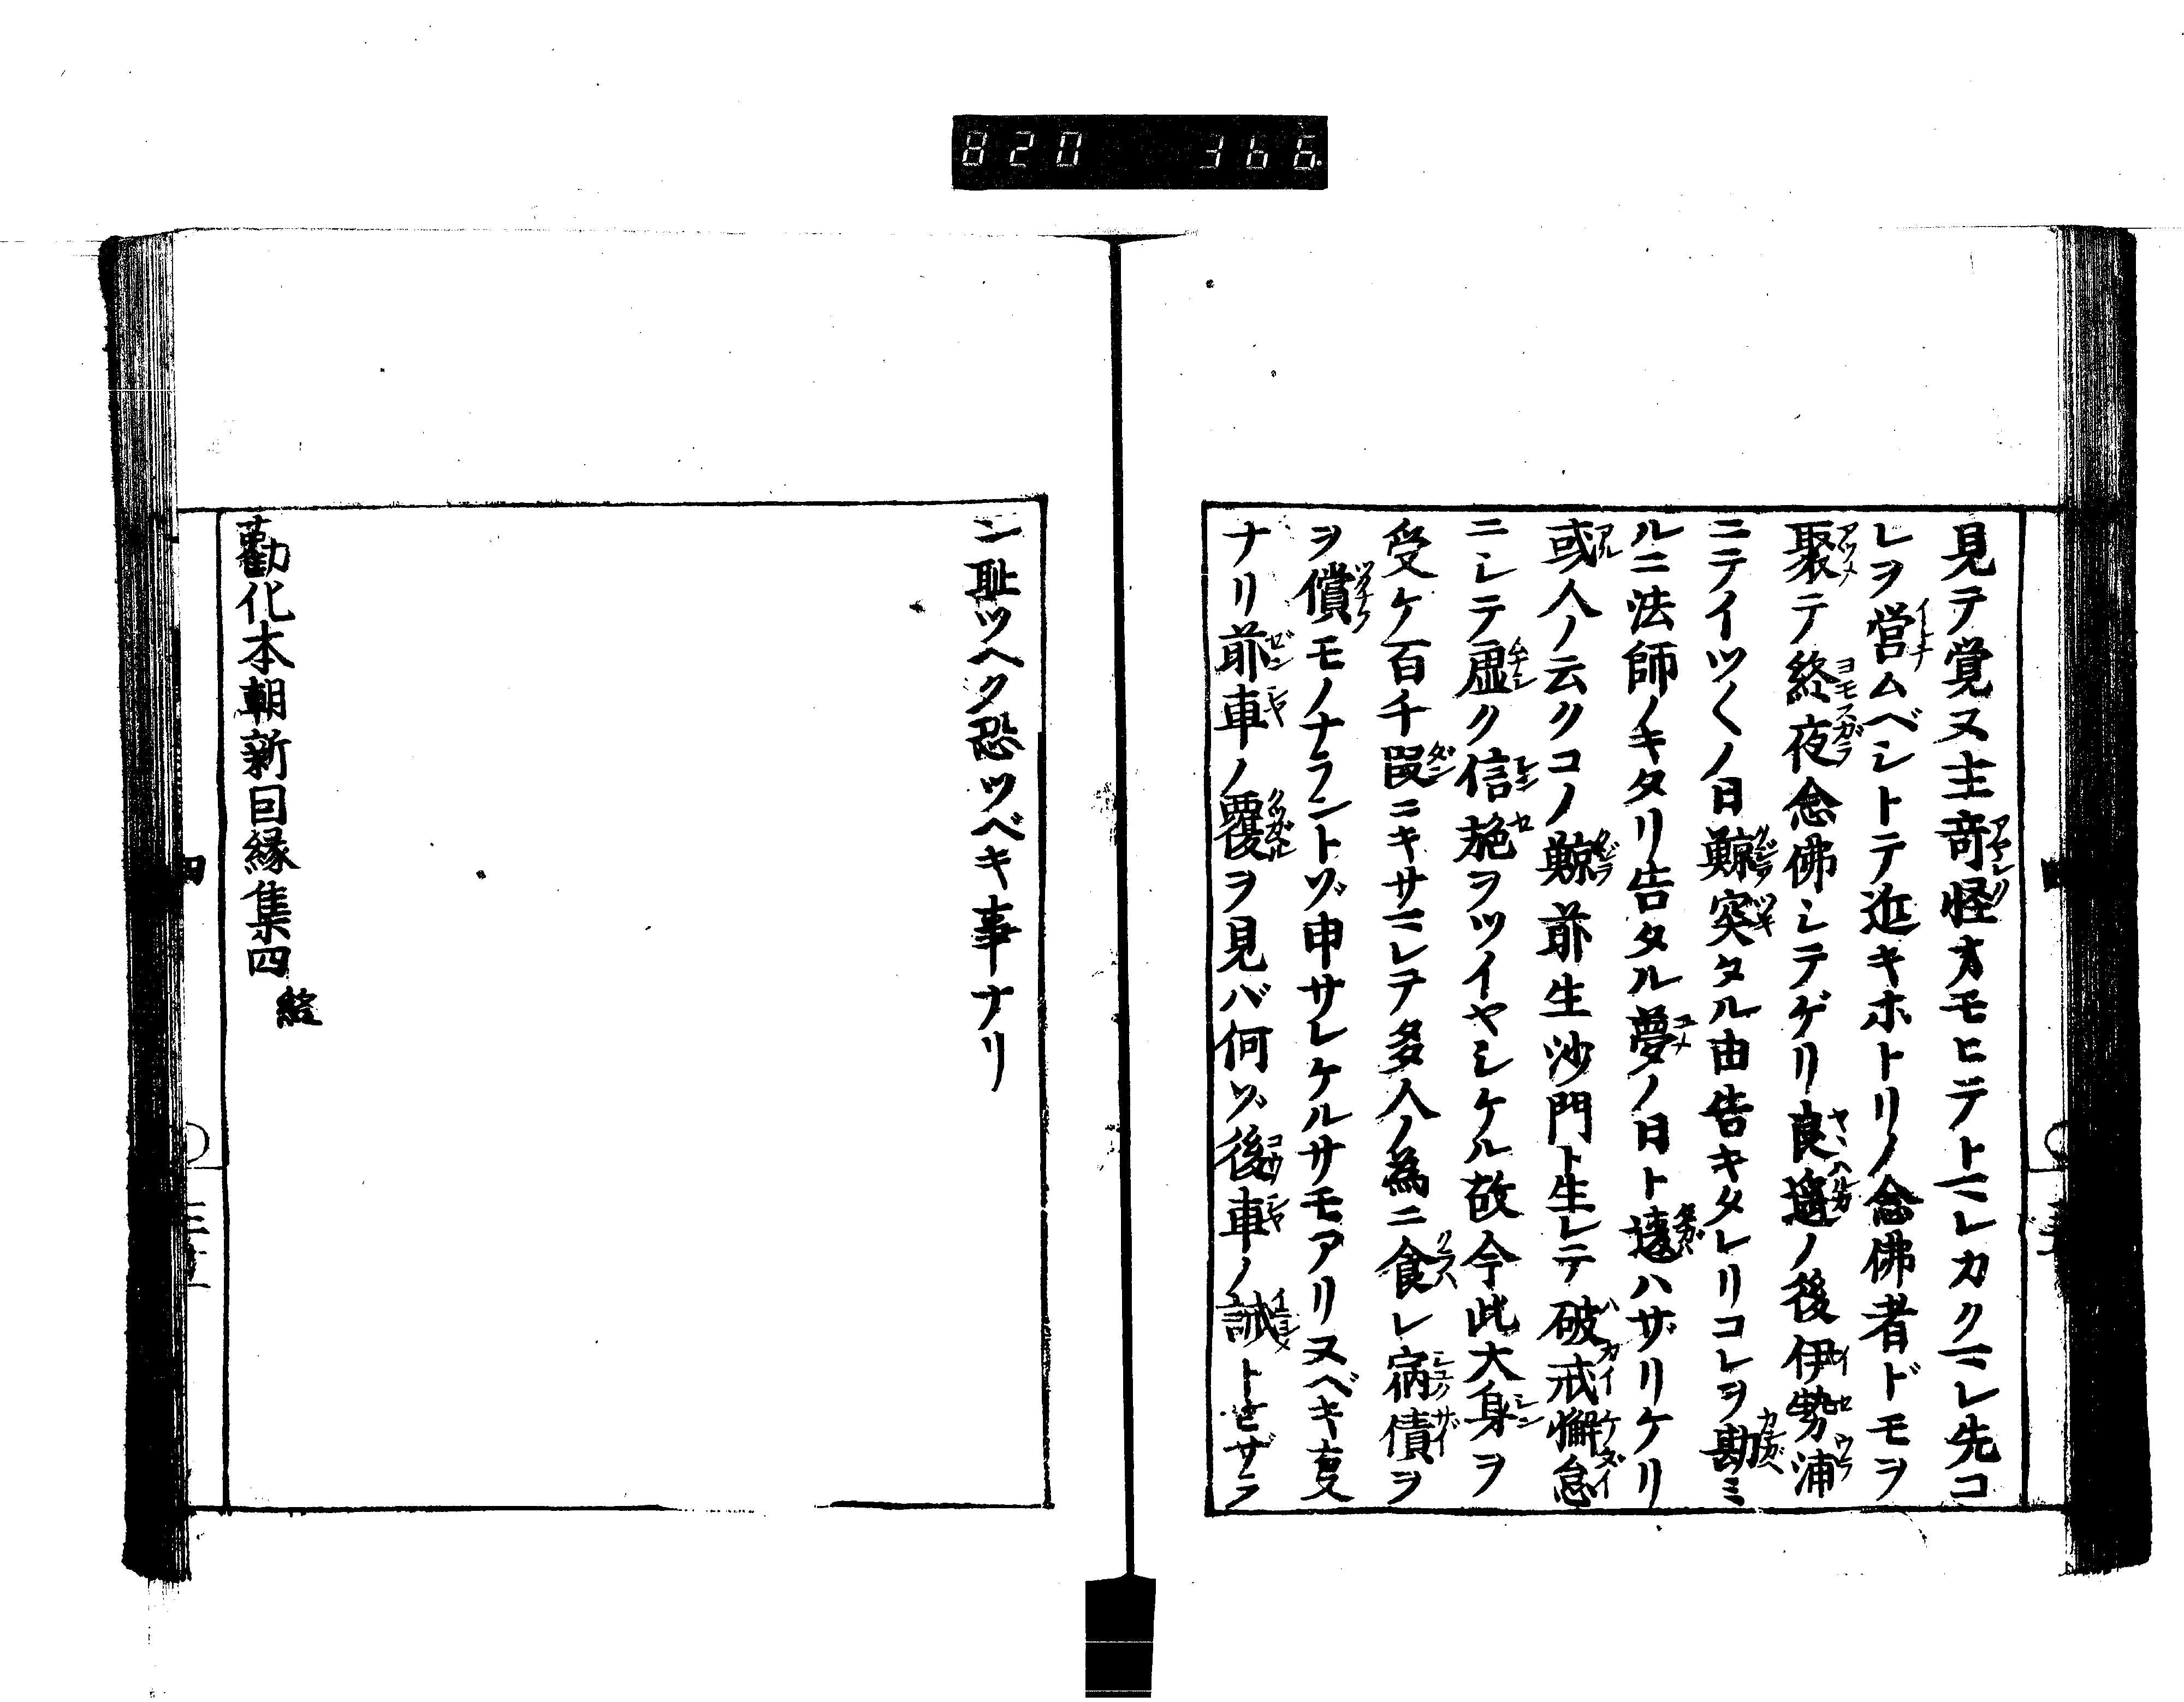 820 366
見テ覚ヌ主竒怪オモヒテトニモレカクニモレ先コ
レヲ営ムベシトテ近キホトリノ念佛者ドモヲ
聚テ終夜念佛シテゲリ良遥ノ後伊勢浦
ニテイツ〱ノ日鯨突タル由告キタレリコレヲ勘ミ
ルニ法師ノキタリ告タル夢ノ日ト違ハザリケリ
或人ノ云クコノ鯨前生沙門ト生レテ破戒懈怠
ニシテ虚ク信施ヲツイヤシケル故今此大身ヲ
受ケ百千段ニキサマレテ多人ノ為ニ食レ宿債ヲ
ヲ償モノナラントゾ申サレケルサモアリヌベキ事
ナリ前車ノ覆ヲ見バ何ゾ後車ノ誡トセザラ
ン耻ツヘク恐ツベキ事ナリ
勸化本朝新因縁集四 終